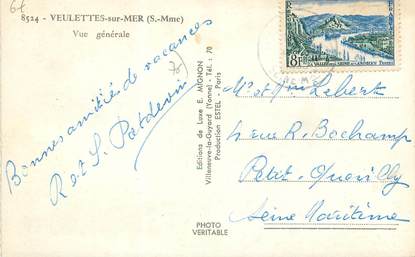 6f
8524 - VEULETTES-sur-MER (S.-Mme)
Vue générale
Bonnes amitiés de vacances
R et S. Patdevin
70
Editions de Luxe E. MIGNON
Villeneuve-la-Guyard (Yonne) - Tél. : 70
Production ESTEL - Paris
PHOTO
VERITABLE
8F
LA VALLÉE DE LA SEINE AUX ANDELYS
Mr et Mme Lebert
4 rue R. Bochamp
Petit-Quevilly
Seine Maritime